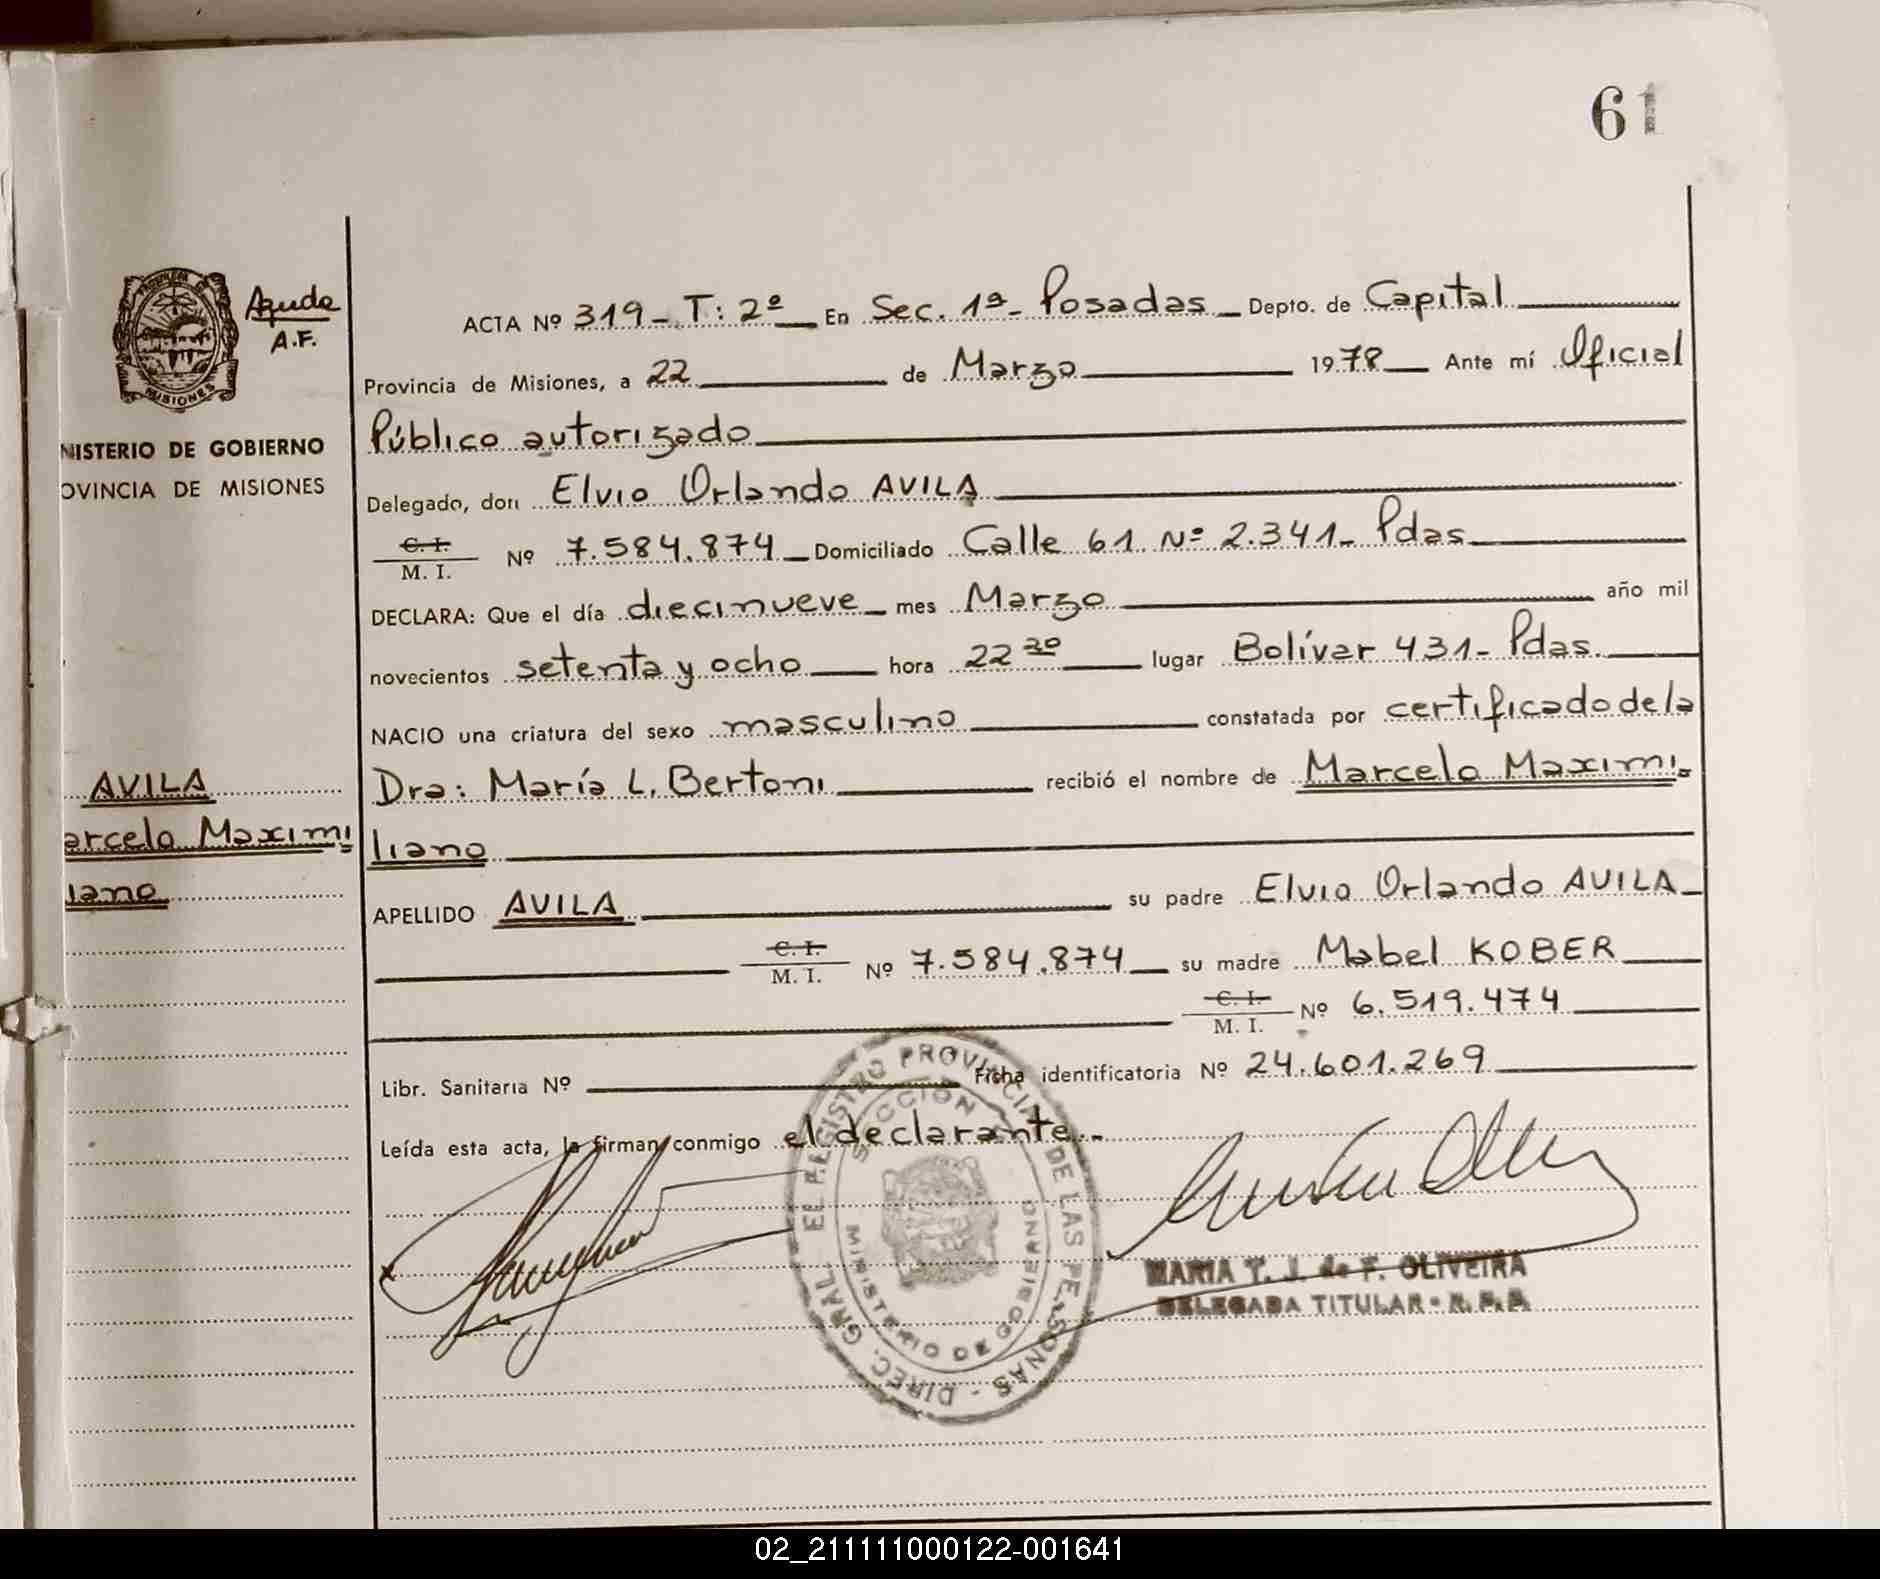 61
Ayuda
A.F.
PROVINCIA DE
MISIONES
NISTERIO DE GOBIERNO
OVINCIA DE MISIONES
AVILA
arcelo Maximi
liano
ACTA Nº 319 - T: 2º En Sec. 1ª - Posadas Depto. de Capital
Provincia de Misiones, a 22 de Marzo 1978 Ante mí Oficial
Público autorizado
Delegado, don Elvio Orlando AVILA
C. I.
M. I. Nº 7.584.874 Domiciliado Calle 61 Nº 2.341 - Pdas
DECLARA: Que el día diecinueve mes Marzo año mil
novecientos setenta y ocho hora 22 30 lugar Bolívar 431 - Pdas.
NACIO una criatura del sexo masculino constatada por certificado de la
Dra: María L. Bertoni recibió el nombre de Marcelo Maximi
liano
APELLIDO AVILA su padre Elvio Orlando AVILA
C. I.
M. I. Nº 7.584.874 su madre Mabel KOBER
C. I.
M. I. Nº 6.519.474
Libr. Sanitaria Nº Ficha identificatoria Nº 24.601.269
Leída esta acta, la firman conmigo el declarante.-
DIREC. GRAL. EL REGISTRO PROVINCIAL DE LAS PERSONAS -
SECCION
MINISTERIO DE GOBIERNO
MARIA T. J. de F. OLIVEIRA
DELEGADA TITULAR - R. P. P.
02_211111000122-001641